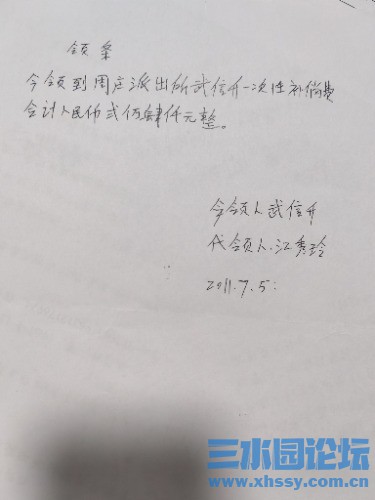 领条
今领到周庄派出所武信升一次性补偿费
合计人民币弍仟肆仟元整。
今领人武信升
代领人.江秀玲
2011.7.5.
三水园论坛
www.xhssy.com.cn